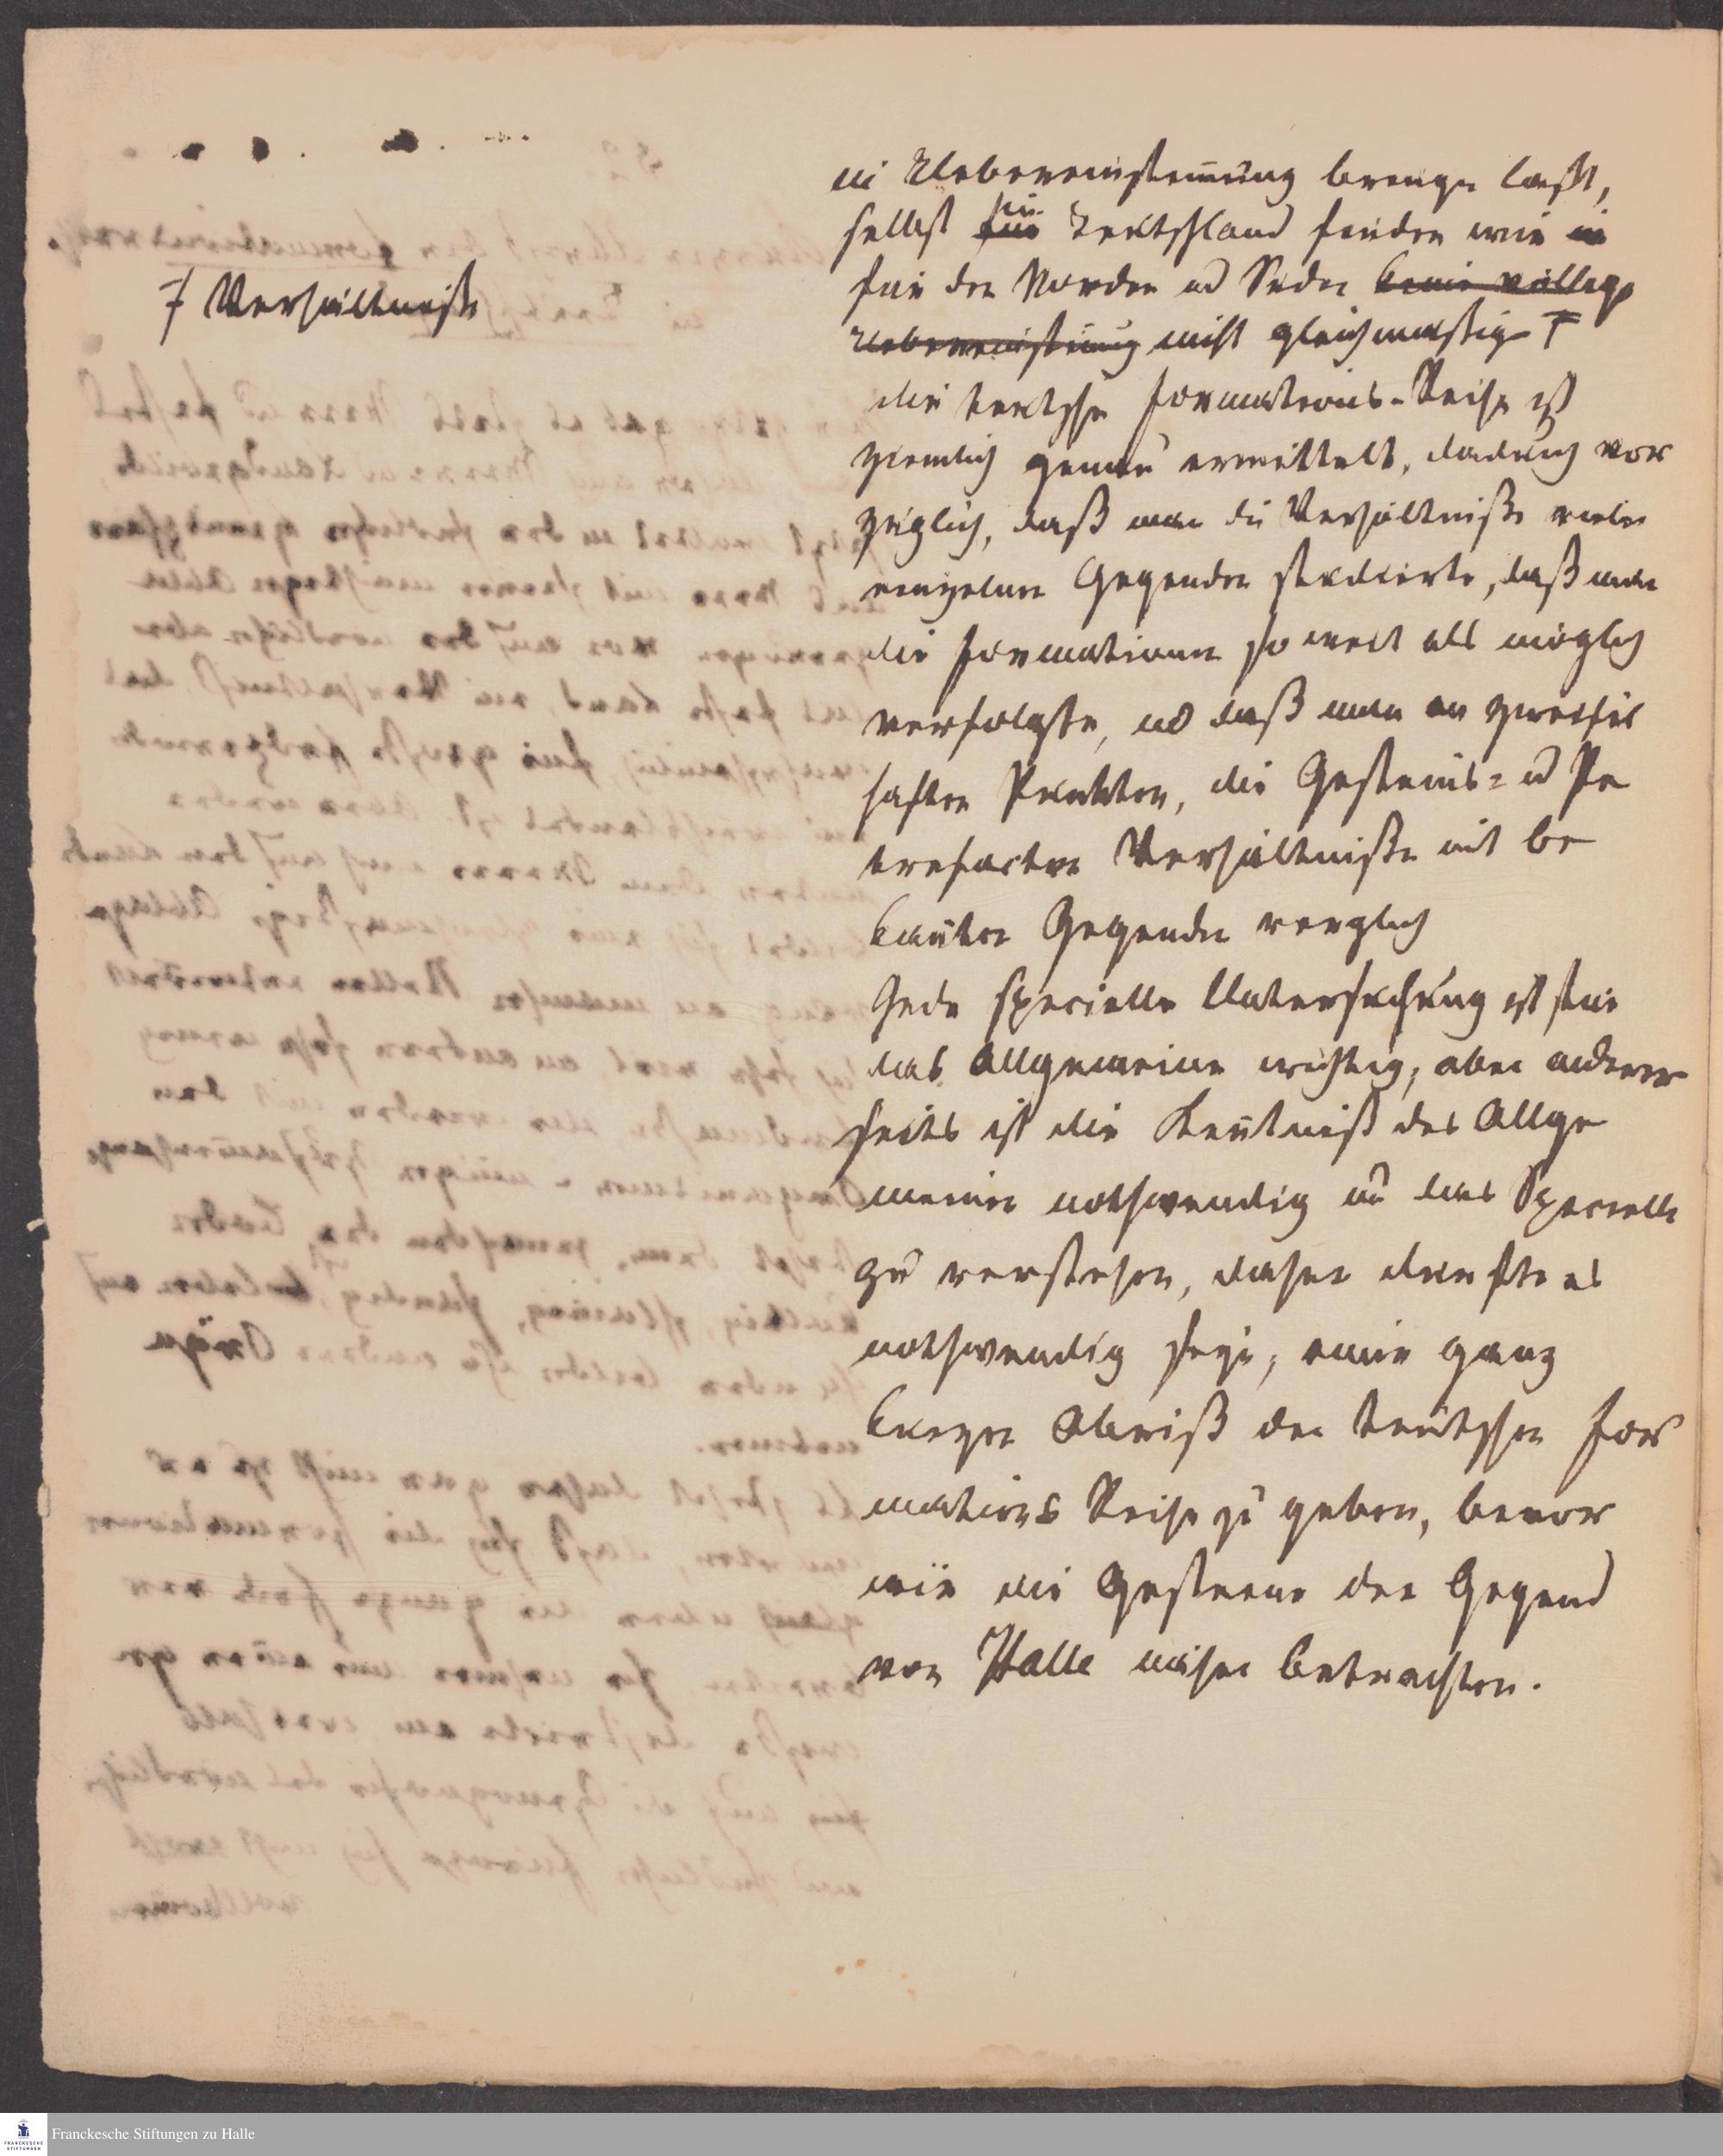 in Uebereinstim̄ung bringen laßt,
selbst für in Teutschland finden wir in
für den Norden ud Süden keine völlige
Uebereinstim̄ung nicht gleichmäßige Ŧ
Ŧ Verhältniße
die teutsche Formations-Reihe ist
ziemlich genau ermittelt, dadurch vor
züglich, daß man die Verhältniße vieler
einzelner Gegenden studierte, daß man
die Formationen so weit als möglich
verfolgte, ud daß man an zweifel
haften Punkten, die Gesteins= ud Pe
trefacten Verhältniße mit be
kan̄ten Gegenden verglich
Jede specielle Untersuchung ist für
das Allgemeine wichtig, aber anderer
seits ist die Ken̄tniß des Allge
meinen nothwendig um das Specielle
zu verstehen, daher dürfte es
nothwendig seyn, einen ganz
kurzen Abriß der teutschen For
mations Reihe zu geben, bevor
wir die Gesteine der Gegend
von Halle näher betrachten.
Franckesche Stiftungen zu Halle